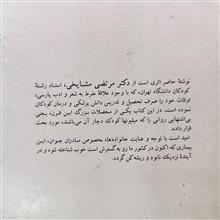 نوشتهٔ حاضر اثری است از دکتر مرتضی مشایخی، استاد رشتهٔ
کودکان دانشگاه تهران، که با وجود علاقهٔ مفرط به شعر و ادب پارسی،
اوقات خود را صرف تحصیل و تدریس دانش پزشکی و درمان کودکان
کرده‌است. در این کتاب یکی از معضلات بزرگ این قرن، یعنی
بی‌اشتهایی روانی را که میلیونها کودک دچار آن می‌باشند، مورد بحث
قرار داده.
امید است با توجه و عنایت خانواده‌ها، بخصوص مادران جوان، این
بیماری که اکنون در کشور ما رو به گسترش است خوب شناخته شود و در
آیندهٔ نزدیک نابود و ریشه‌کن گردد.